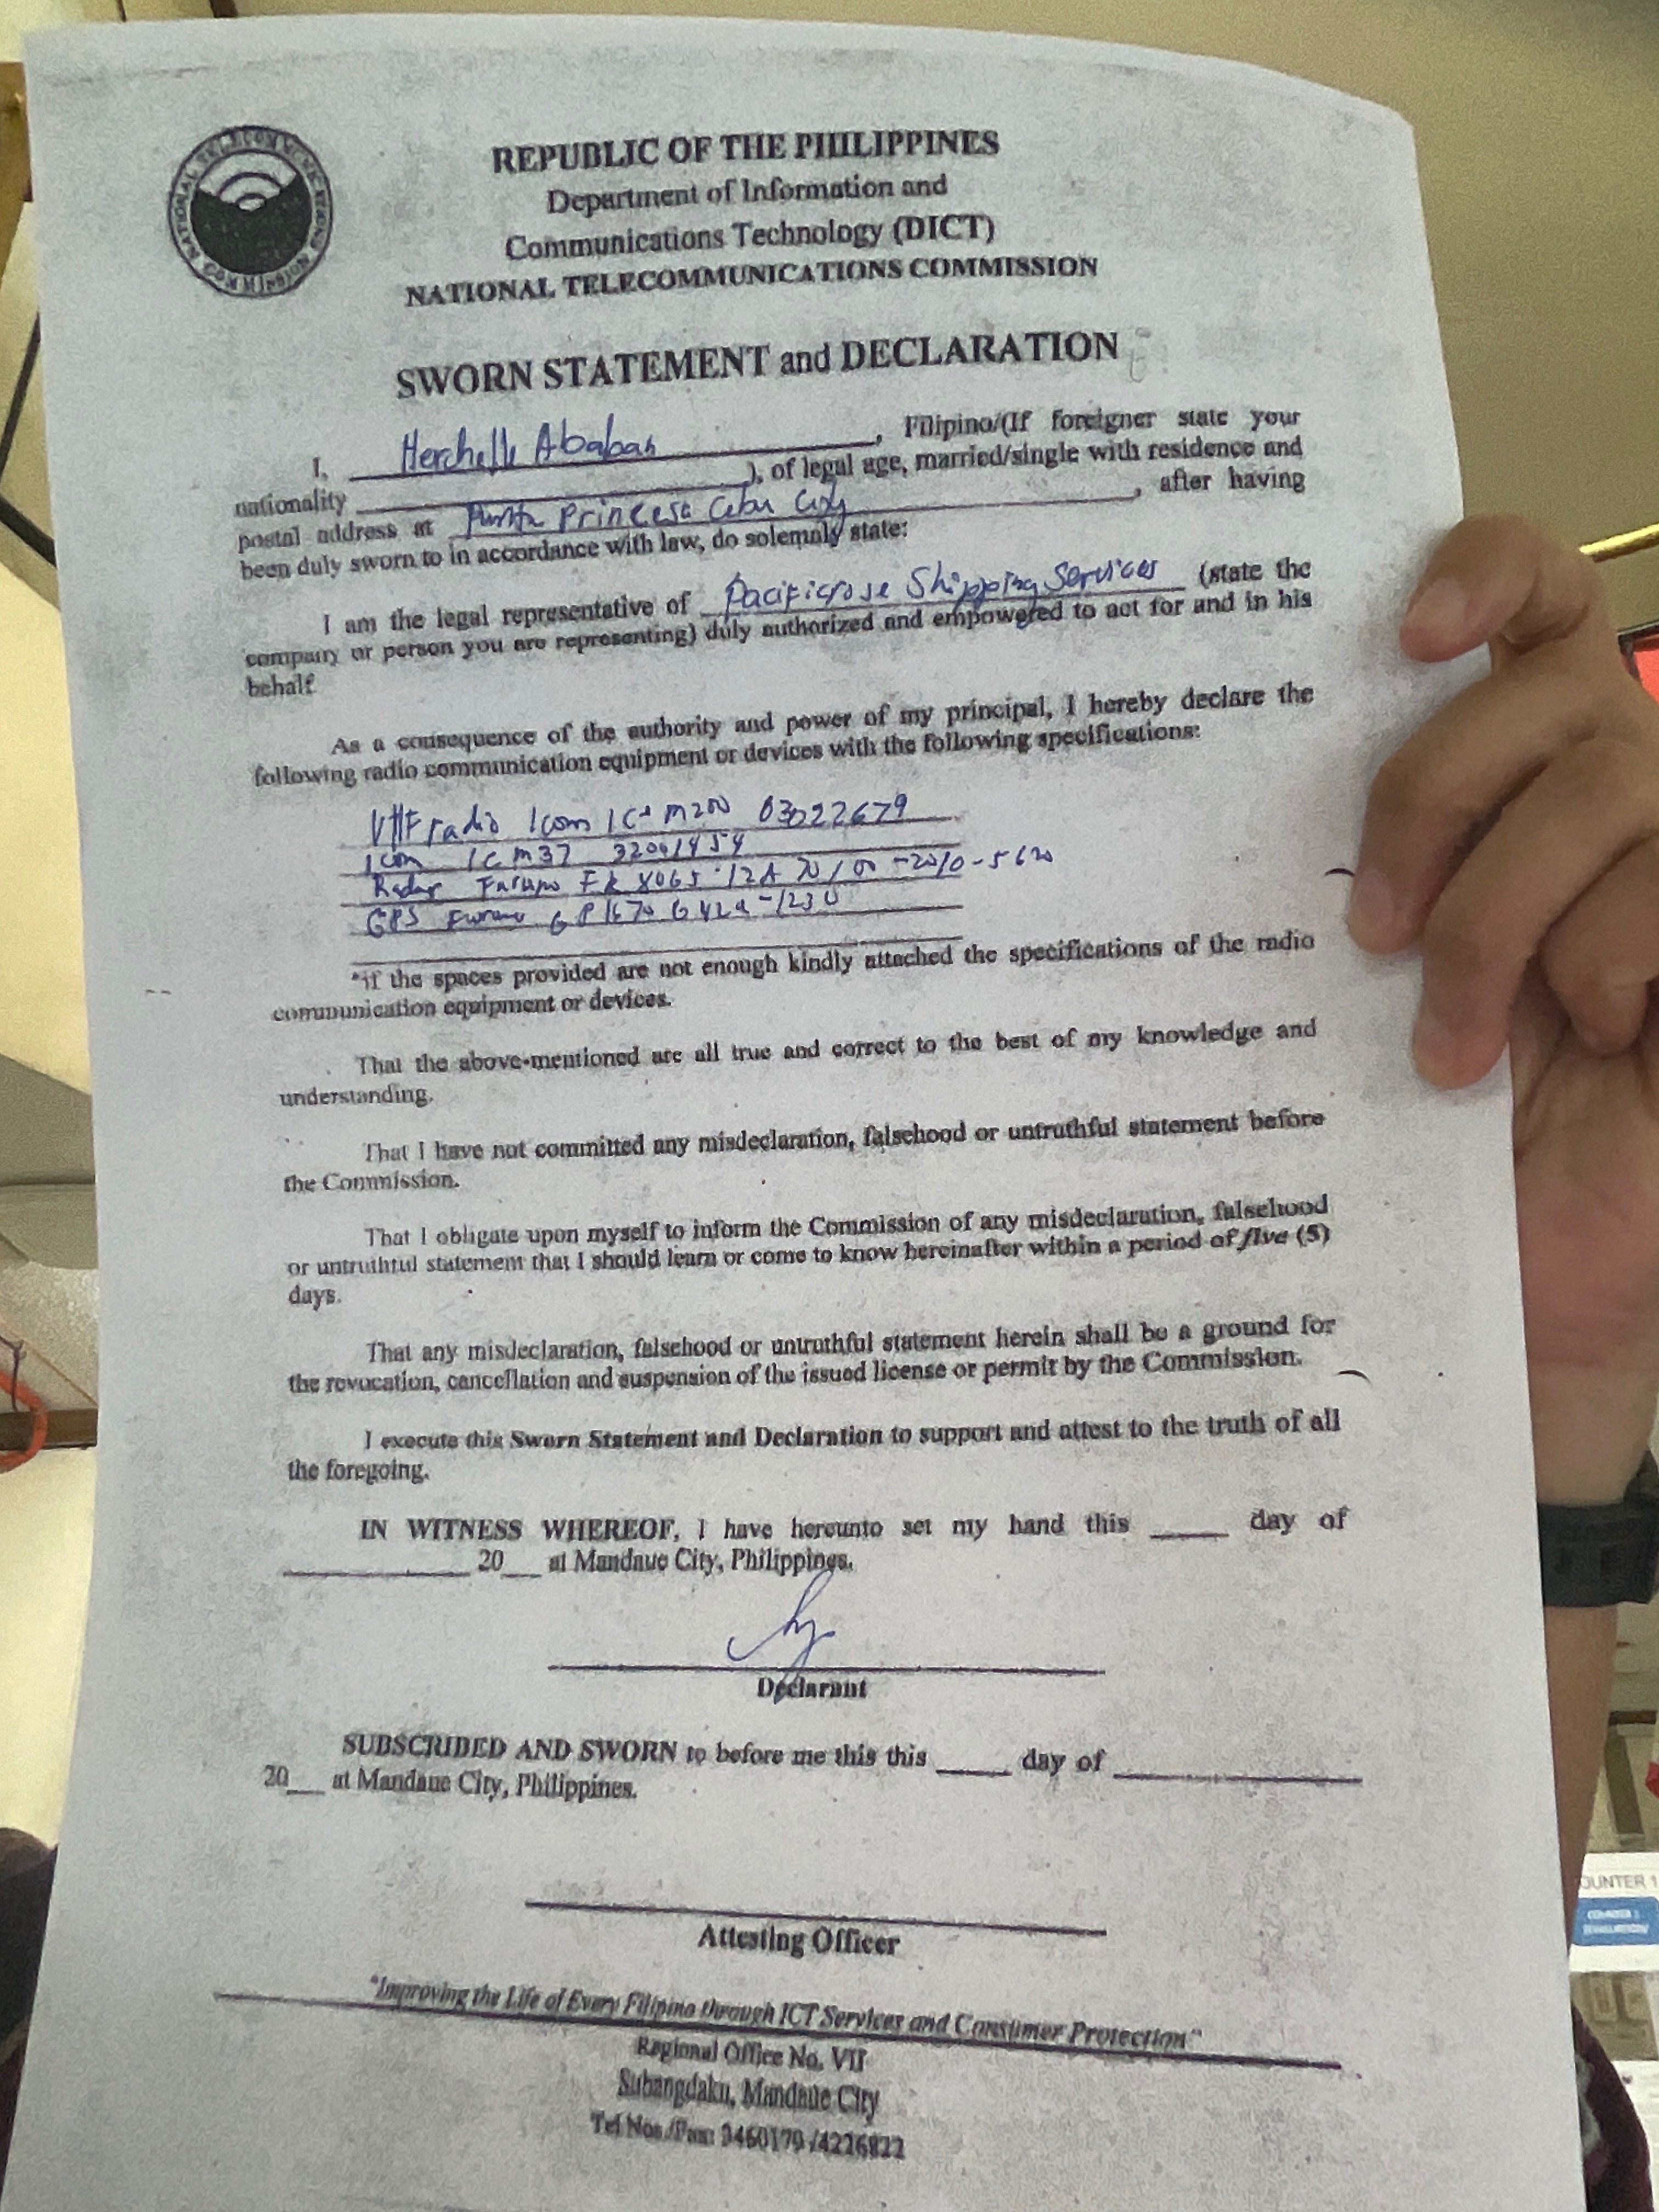 NATIONAL TELECOMMUNICATIONS COMMISSION
REPUBLIC OF THE PHILIPPINES
Department of Information and
Communications Technology (DICT)
NATIONAL TELECOMMUNICATIONS COMMISSION
SWORN STATEMENT and DECLARATION
I, Herchelle Ababan, Filipino/(If foreigner state your
nationality ), of legal age, married/single with residence and
postal address at Punta Princesa Cebu City, after having
been duly sworn to in accordance with law, do solemnly state:
I am the legal representative of Pacificrose Shipping Services (state the
company or person you are representing) duly authorized and empowered to act for and in his
behalf.
As a consequence of the authority and power of my principal, I hereby declare the
following radio communication equipment or devices with the following specifications:
VHF radio Icom IC-M200 03022679
Icom IC M37 32041454
Radar Furuno 8065 -2010-5620
GPS Furuno
*if the spaces provided are not enough kindly attached the specifications of the radio
communication equipment or devices.
That the above-mentioned are all true and correct to the best of my knowledge and
understanding.
That I have not committed any misdeclaration, falsehood or untruthful statement before
the Commission.
That I obligate upon myself to inform the Commission of any misdeclaration, falsehood
or untruthful statement that I should learn or come to know hereinafter within a period of five (5)
days.
That any misdeclaration, falsehood or untruthful statement herein shall be a ground for
the revocation, cancellation and suspension of the issued license or permit by the Commission.
I execute this Sworn Statement and Declaration to support and attest to the truth of all
the foregoing.
IN WITNESS WHEREOF, I have hereunto set my hand this ____ day of
____ 20__ at Mandaue City, Philippines.
Declarant
SUBSCRIBED AND SWORN to before me this this ____ day of ____
20__ at Mandaue City, Philippines.
Attesting Officer
"Improving the Life of Every Filipino through ICT Services and Consumer Protection"
Regional Office No. VII
Subangdaku, Mandaue City
Tel Nos./Fax: 3460179 /4226822
OUNTER 1